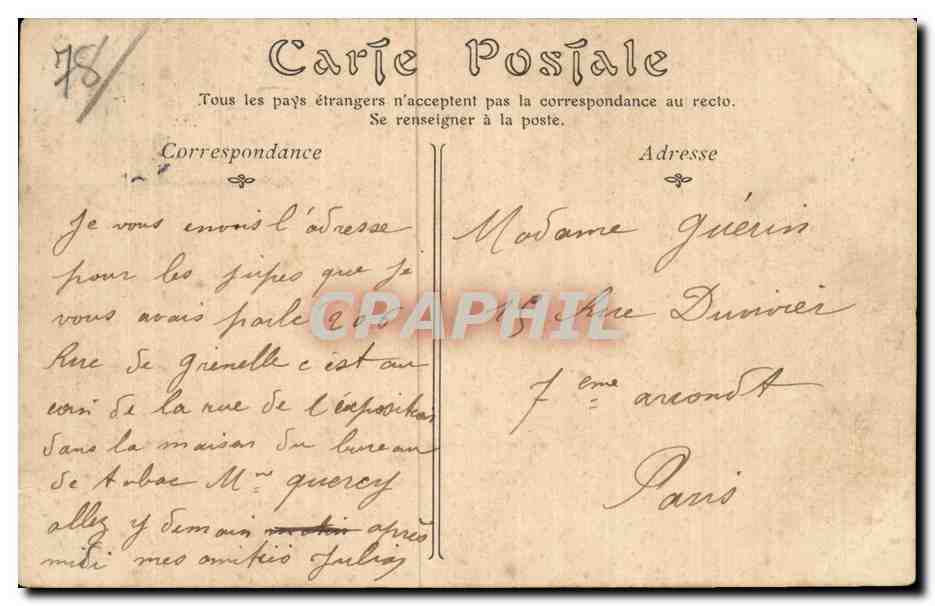 78/
Carte Postale
Tous les pays étrangers n'acceptent pas la correspondance au recto.
Se renseigner à la poste.
Correspondance
Je vous envois l'adresse
pour les jupes que je
vous avais parlé 206
Rue de Grenelle c'est au
coin de la rue de l'exposition
dans la maison du bureau
de tabac Mme Quercy
allez y demain matin après
midi mes amitiés
Adresse
Madame Guérin
15 Rue Duvivier
7 eme arrondt
Paris
CPAPHIL